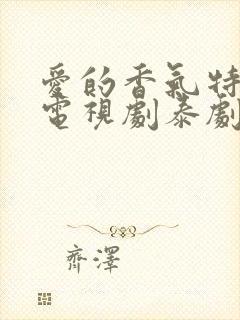 愛的香氣特
電視劇泰劇
齊澤